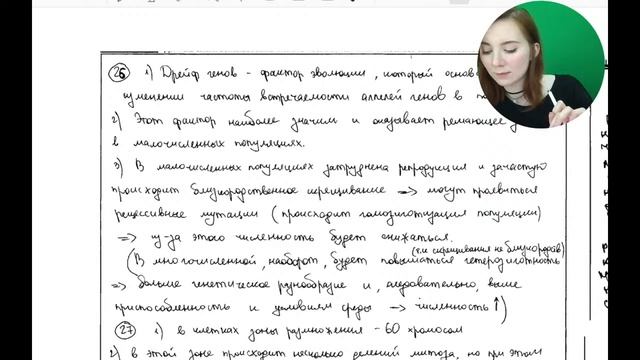 26 1) Дрейф генов - фактор эволюции, который основ
изменении частоты встречаемости аллелей генов в
2) Этот фактор наиболее значим и оказывает решающее
в малочисленных популяциях.
3) В малочисленных популяциях затруднена репродукция и зачастую
происходит близкородственное скрещивание => могут проявиться
рецессивные мутации (происходит гомозиготизация популяции)
=> из-за этого численность будет снижаться.
(В многочисленной, наоборот, будет повышаться гетерозиготность (т.к. скрещивания не близкородств)
=> больше генетическое разнообразие и, следовательно, выше
приспособленность к условиям среды -> численность ↑)
27 1) в клетках зоны размножения - 60 хромосом
2) в этой зоне происходит несколько делений митоза, но при этом